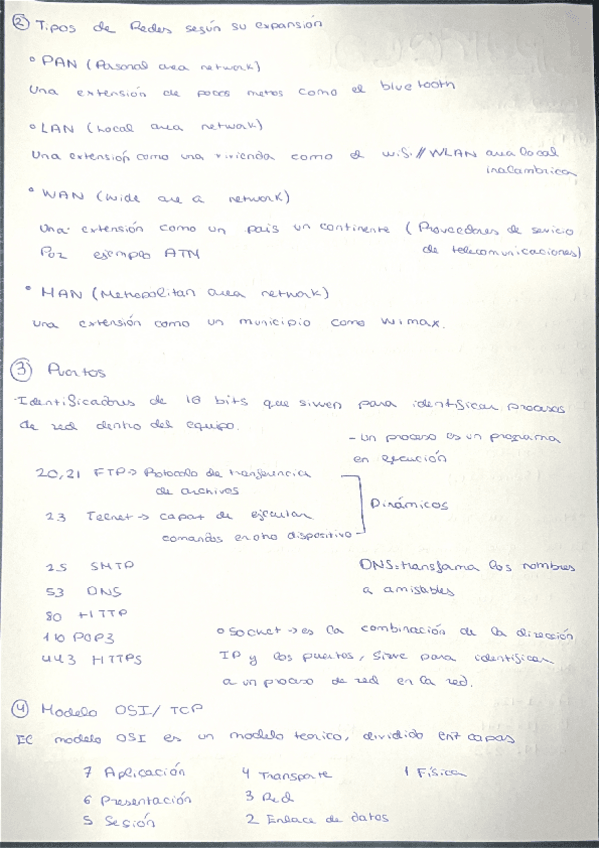 ② Tipos de Redes según su expansión
° PAN (Personal area network)
Una extensión de pocos metros como el bluetooth
° LAN (Local area network)
Una extensión como una vivienda como el wifi // WLAN area local
inalambrica
° WAN (wide area network)
Una extensión como un pais un continente (Proveedores de servicio
Por ejemplo ATM de telecomunicaciones)
° MAN (Metropolitan area network)
Una extensión como un municipio como wimax.
③ Puertos
Identificadores de 16 bits que sirven para identificar procesos
de red dentro del equipo.
- un proceso es un programa
en ejecución
20,21 FTP → Protocolo de transferencia
de archivos
Dinámicos
23 Telnet → capaz de ejecutar
comandos en otro dispositivo
25 SMTP DNS = transforma los nombres
53 DNS a amistables
80 HTTP
110 POP3 ° Socket → es la combinación de la dirección
443 HTTPS IP y los puertos, sirve para identificar
a un proceso de red en la red.
④ Modelo OSI / TCP
El modelo OSI es un modelo teorico, dividido en 7 capas
7 Aplicación 4 Transporte 1 Física
6 Presentación 3 Red
5 Sesión 2 Enlace de datos